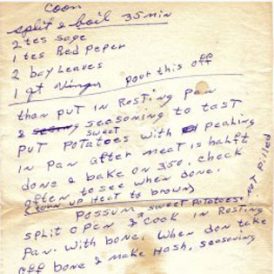 Coon
split & boil 35 min
2 tes sage
1 tes Red Peper
2 bay Leaves
1 qt Vinger pour this off
than put in Rosting pan
& seasoning to tast
put sweet potatoes with peaking
in pan after meat is halft
done & bake on 350. check
often to see when done.
(turn up heat to brown)
Possum sweet potatoes. not pilled
split open & cook in Rosting
pan. with bone. when don take
off bone & make Hash, seasoning